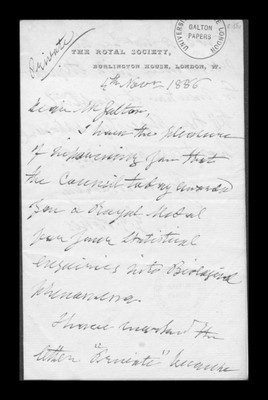 Private
THE ROYAL SOCIETY,
BURLINGTON HOUSE, LONDON, W.
UNIVERSITY LONDON
GALTON
PAPERS
4th Novr 1886
Dear Mr Galton,
I have the pleasure
of informing you that
the Council today awarded
you a Royal Medal
for your Statistical
enquiries into Biological
phenomena.
I have marked the
letter "Private" because